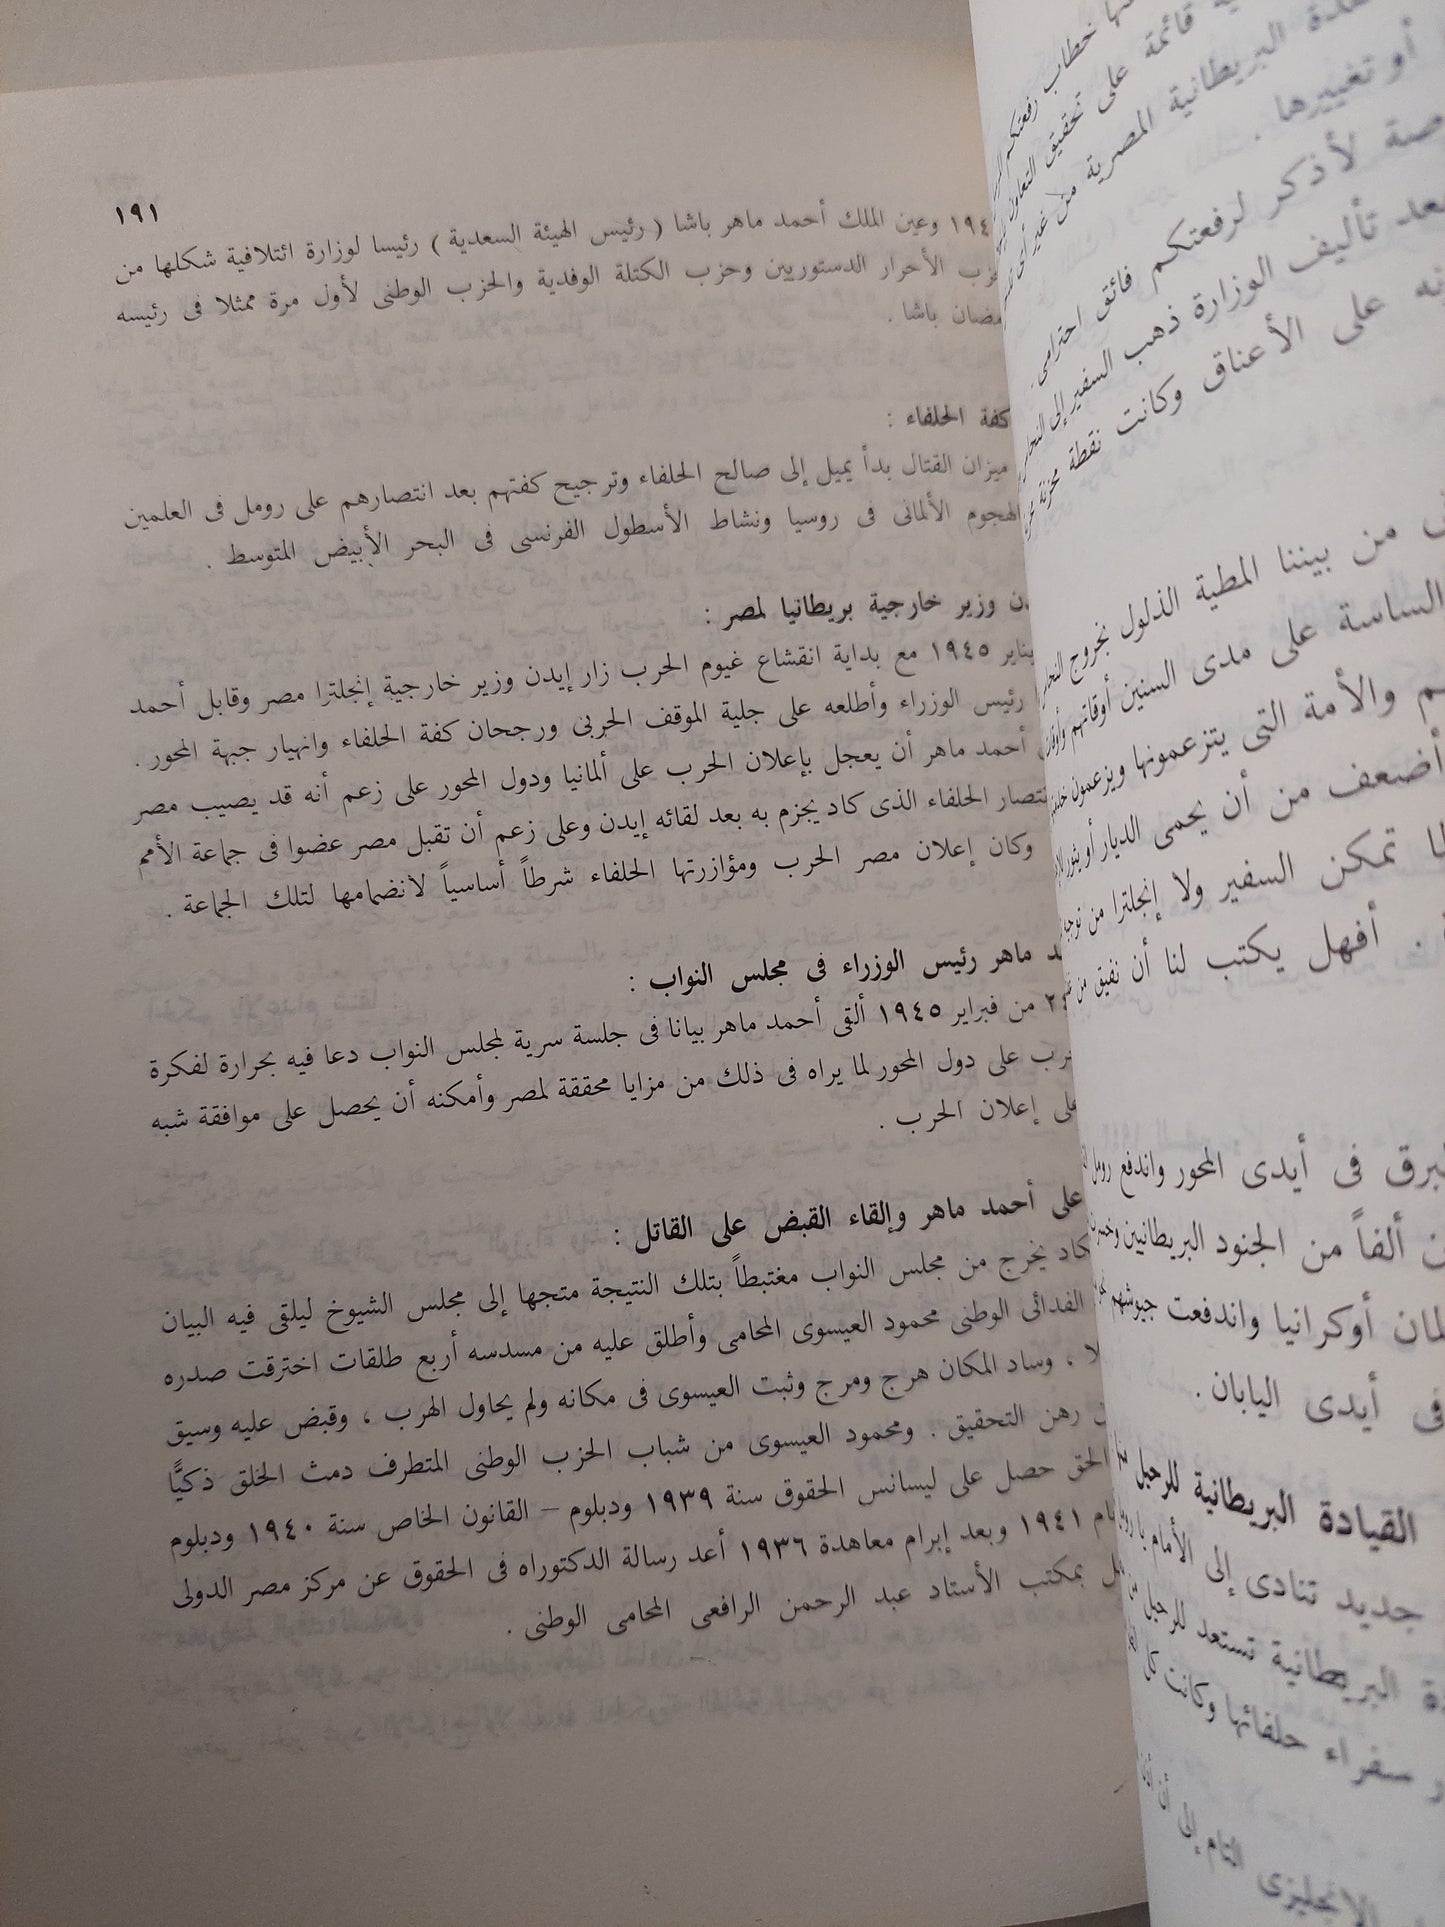 ١٩١
وعين الملك أحمد ماهر باشا ( رئيس الهيئة السعدية ) رئيسا لوزارة ائتلافية شكلها من
الأحرار الدستوريين وحزب الكتلة الوفدية والحزب الوطنى لأول مرة ممثلا فى رئيسه
باشا .
كفة الحلفاء :
ميزان القتال بدأ يميل إلى صالح الحلفاء وترجيح كفتهم بعد انتصارهم على رومل فى العلمين
الهجوم الألمانى فى روسيا ونشاط الأسطول الفرنسى فى البحر الأبيض المتوسط .
وزير خارجية بريطانيا لمصر :
يناير ١٩٤٥ مع بداية انقشاع غيوم الحرب زار إيدن وزير خارجية إنجلترا مصر وقابل أحمد
رئيس الوزراء وأطلعه على جلية الموقف الحربى ورجحان كفة الحلفاء وانهيار جبهة المحور .
أحمد ماهر أن يعجل بإعلان الحرب على ألمانيا ودول المحور على زعم أنه قد يصيب مصر
انتصار الحلفاء الذى كاد يجزم به بعد لقائه إيدن وعلى زعم أن تقبل مصر عضوا فى جماعة الأمم
وكان إعلان مصر الحرب ومؤازرتها الحلفاء شرطاً أساسياً لانضمامها لتلك الجماعة .
ماهر رئيس الوزراء فى مجلس النواب :
٢٤ من فبراير ١٩٤٥ ألقى أحمد ماهر بيانا فى جلسة سرية لمجلس النواب دعا فيه بحرارة لفكرة
على دول المحور لما يراه فى ذلك من مزايا محققة لمصر وأمكنه أن يحصل على موافقة شبه
على إعلان الحرب .
على أحمد ماهر وإلقاء القبض على القاتل :
كاد يخرج من مجلس النواب مغتبطاً بتلك النتيجة متجها إلى مجلس الشيوخ ليلقى فيه البيان
الفدائى الوطنى محمود العيسوى المحامى وأطلق عليه من مسدسه أربع طلقات اخترقت صدره
، وساد المكان هرج ومرج وثبت العيسوى فى مكانه ولم يحاول الهرب ، وقبض عليه وسيق
رهن التحقيق . ومحمود العيسوى من شباب الحزب الوطنى المتطرف دمث الخلق ذكيًّا
الحق حصل على ليسانس الحقوق سنة ١٩٣٩ ودبلوم – القانون الخاص سنة ١٩٤٠ ودبلوم
١٩٤١ وبعد إبرام معاهدة ١٩٣٦ أعد رسالة الدكتوراه فى الحقوق عن مركز مصر الدولى
بمكتب الأستاد عبد الرحمن الرافعى المحامى الوطنى .
خطاب رفعتكم
قائمة على تحقيق التعاون
البريطانية المصرية من غير
أو تغييرها .
لأذكر لرفعتكم فائق احترامى .
تأليف الوزارة ذهب السفير إلى
على الأعناق وكانت نقطة محزنة
من بيننا المطية الذلول بخروج
الساسة على مدى السنين أوقاتهم
والأمة التى يتزعمونها ويزعمون
أضعف من أن يحمى الديار أو
تمكن السفير ولا إنجلترا من
. أفهل يكتب لنا أن نفيق من
فى أيدى المحور واندفع رومل
ألفاً من الجنود البريطانيين
أوكرانيا واندفعت جيوشهم
فى أيدى اليابان .
القيادة البريطانية للرحيل
جديد تنادى إلى الأمام يا
البريطانية تستعد للرحيل من
سفراء حلفائها وكانت كل
الإنجليزى إلى أن